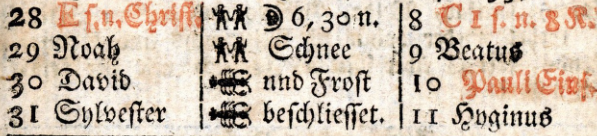 28 E s. n. Christ. D 6, 30 n. 8 C 1 s. n. 8 K.
29 Noah Schnee 9 Beatus
30 David und Frost 10 Pauli Eins.
31 Sylvester beschliesset. 11 Hyginus